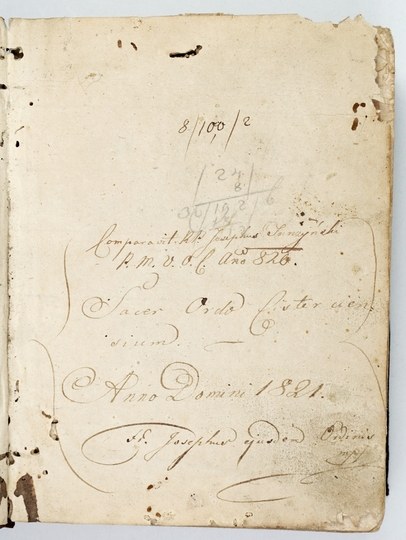 8/100/2
24
8
30/192/6
Comparavit Josephus
P. M. V. O. C. Ano 826.
Sacer Ordo Cistercien,
sium.
Anno Domini 1821.
Ff. Josephus ejusdem Ordinis
mp